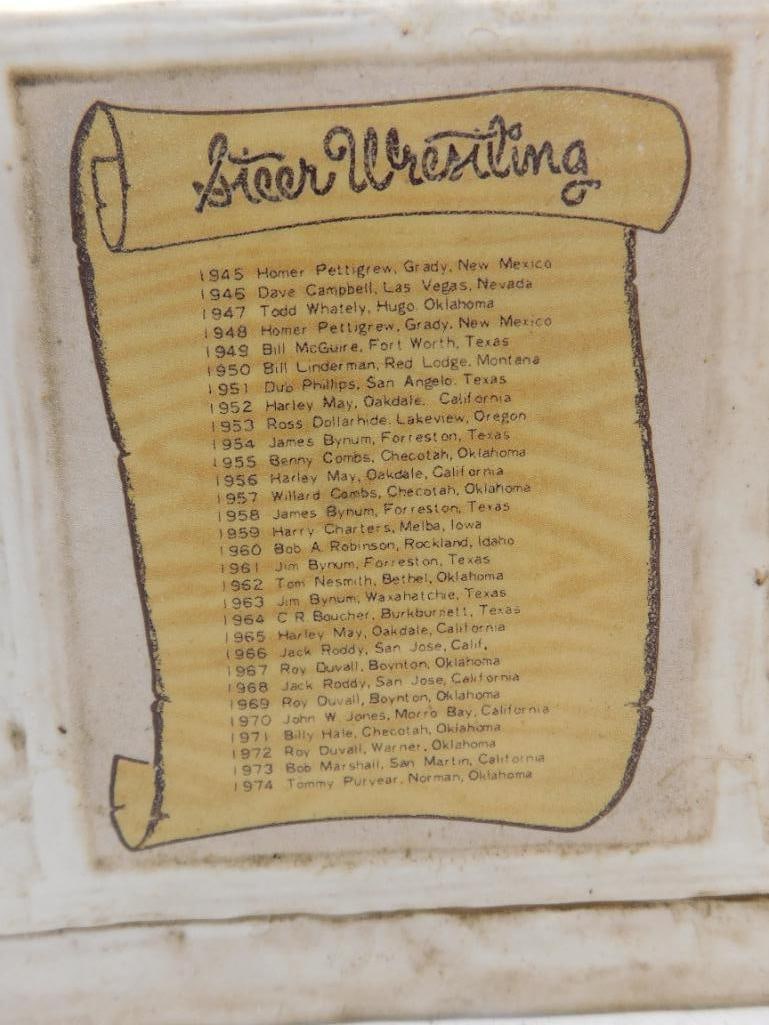 Steer Wrestling
1945 Homer Pettigrew, Grady, New Mexico
1946 Dave Campbell, Las Vegas, Nevada
1947 Todd Whately, Hugo. Oklahoma
1948 Homer Pettigrew, Grady, New Mexico
1949 Bill McGuire, Fort Worth, Texas
1950 Bill Linderman, Red Lodge, Montana
1951 Dub Phillips, San Angelo. Texas
1952 Harley May, Oakdale. California
1953 Ross Dollarhide. Lakeview, Oregon
1954 James Bynum, Forreston, Texas
1955 Benny Combs, Checotah, Oklahoma
1956 Harley May, Oakdale, California
1957 Willard Combs, Checotah, Oklahoma
1958 James Bynum, Forreston, Texas
1959 Harry Charters, Melba, Iowa
1960 Bob A. Robinson, Rockland, Idaho
1961 Jim Bynum, Forreston, Texas
1962 Tom Nesmith, Bethel, Oklahoma
1963 Jim Bynum, Waxahatchie, Texas
1964 C R Boucher, Burkburnett, Texas
1965 Harley May, Oakdale, California
1966 Jack Roddy, San Jose, Calif,
1967 Roy Duvall, Boynton, Oklahoma
1968 Jack Roddy, San Jose, California
1969 Roy Duvall, Boynton, Oklahoma
1970 John W. Jones, Morro Bay, California
1971 Billy Hale, Checotah, Oklahoma
1972 Roy Duvall, Warner, Oklahoma
1973 Bob Marshall, San Martin, California
1974 Tommy Puryear, Norman, Oklahoma